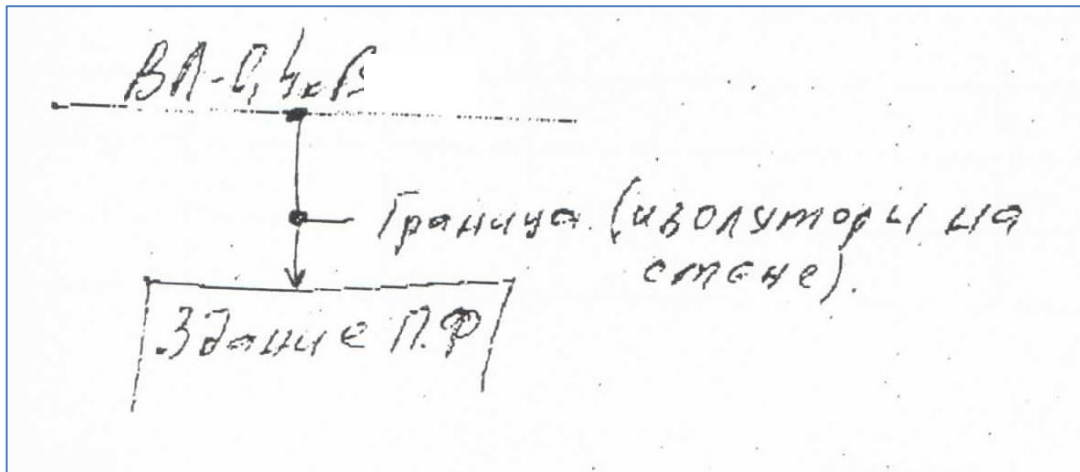 ВЛ-0,4кВ
Граница (изоляторы на
стене).
Здание П.Ф